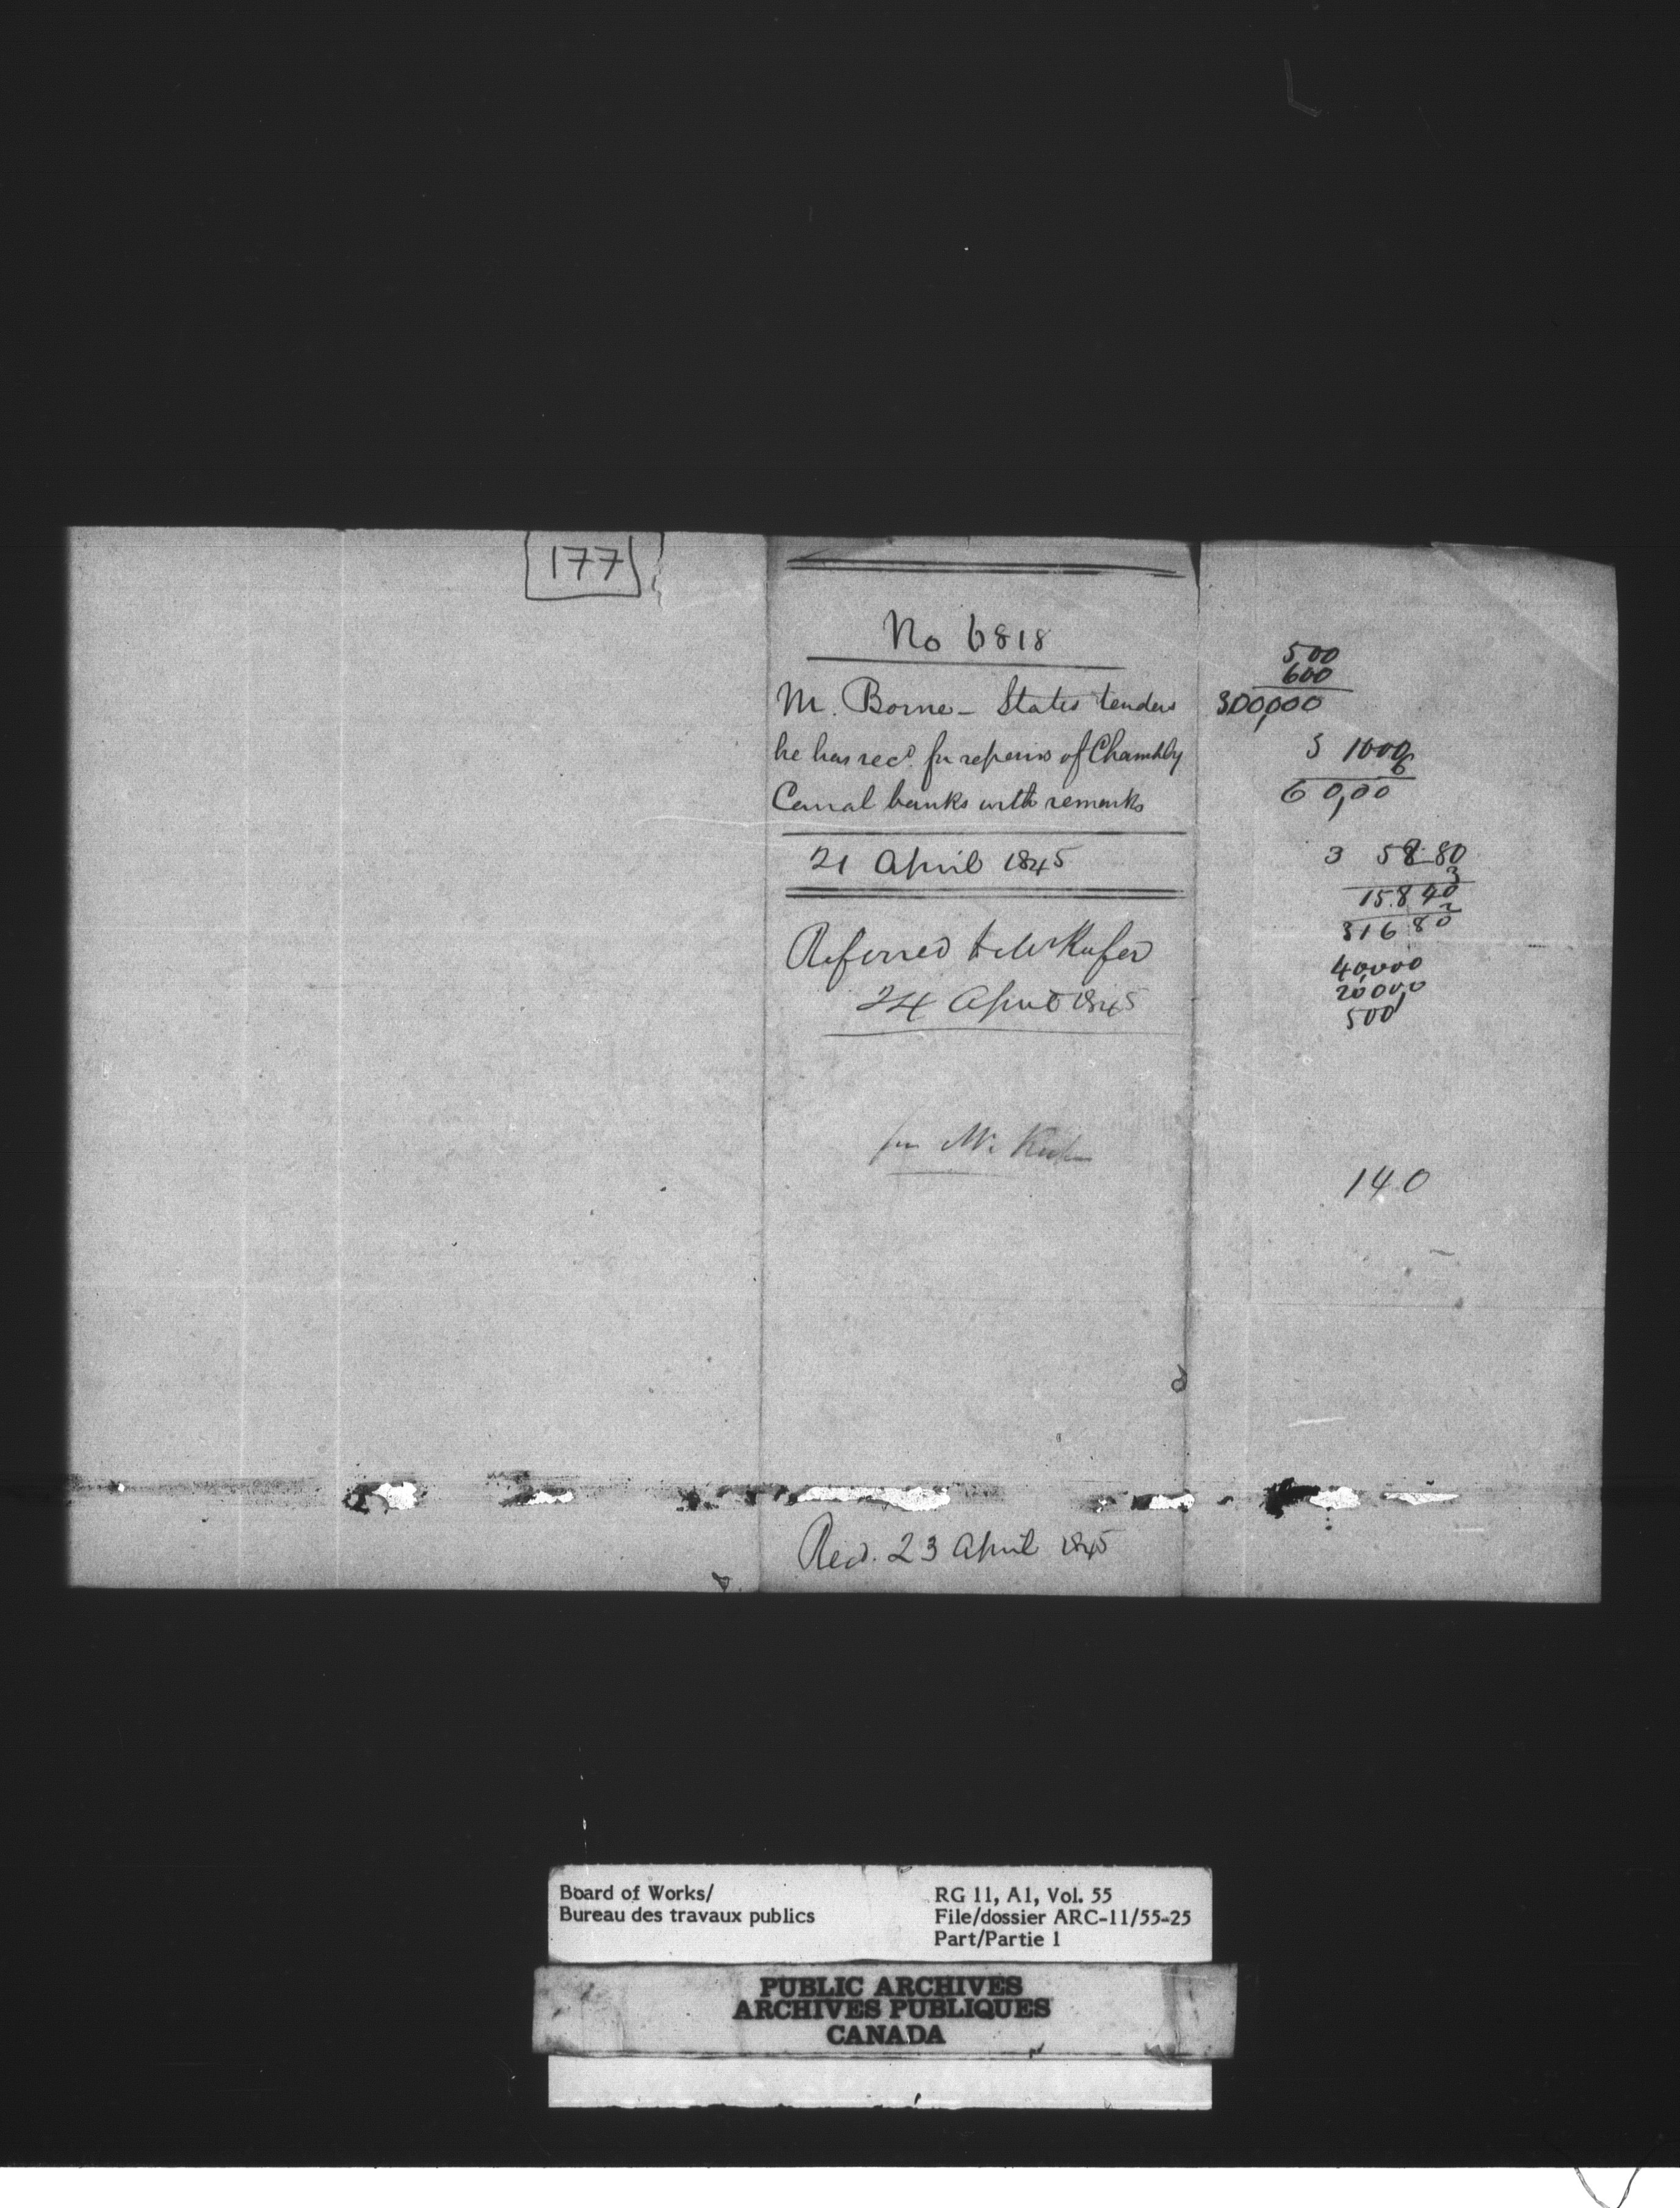 177
No 6818
M. Borne - States tenders
he has recd. for repairs of Chambly
Canal banks with remarks
21 April 1845
Referred to Mr Keefer
24 April 1845
for Mr.
Recd. 23 April 1845
500
600
300,000
1000
6
60,00
3 5280
3
15.840
2
31680
40,000
20,000
500
140
Board of Works/
Bureau des travaux publics
RG 11, A1, Vol. 55
File/dossier ARC-11/55-25
Part/Partie 1
PUBLIC ARCHIVES
ARCHIVES PUBLIQUES
CANADA